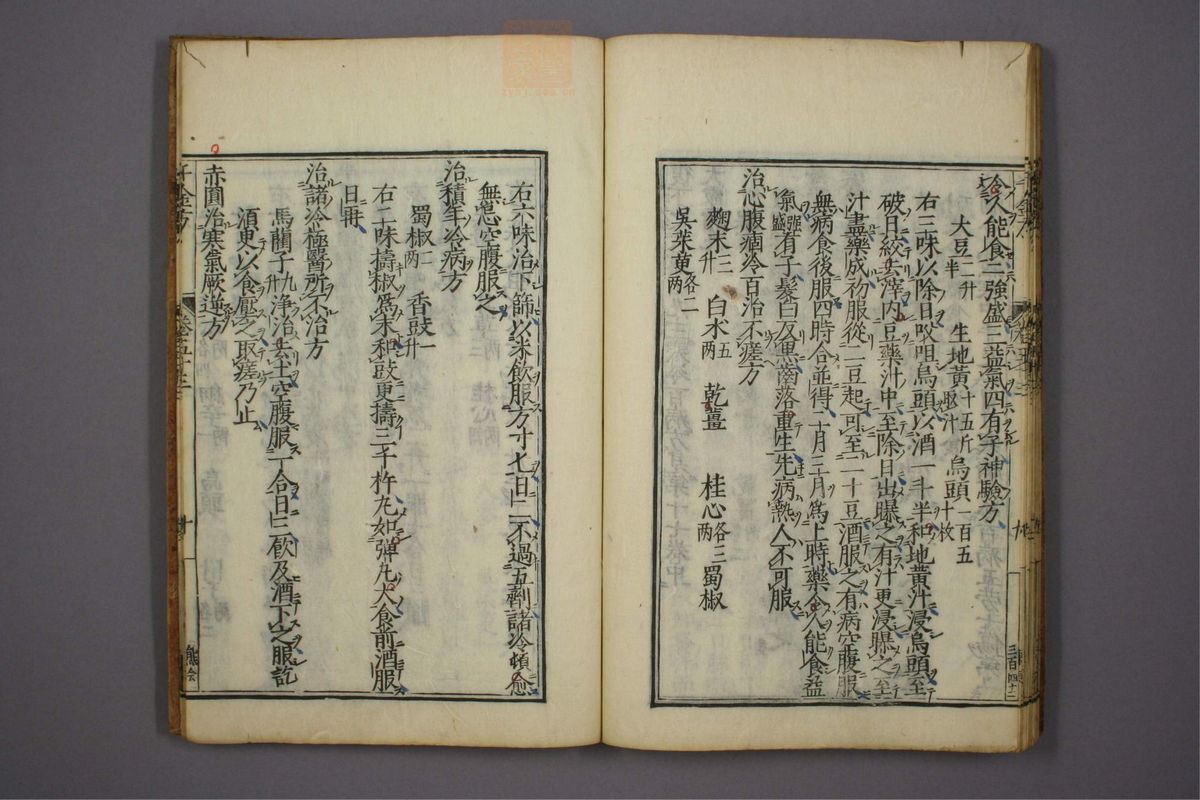 令人能食二強盛三益氣四有子神驗方
大豆二升半 生地黃取汁十五斤 烏頭一百五十枚
右三味以除日㕮咀烏頭以酒一斗半和地黃汁浸烏頭至
破日絞去滓內豆藥汁中至除日出曝之有汁更浸曝之至
汁盡藥成初服從二豆起可至二十豆酒服之有病空腹服
無病食後服四時合並得二月三月爲上時藥令人能食益
氣強盛有子髮白反黑齒落重生先病熱人不可服
治心腹痼冷百治不瘥方
麴末三升 白术五兩 乾薑 桂心各三兩 蜀椒
吳茱萸各二兩
右六味治下篩以米飲服方寸匕日二不過五劑諸冷頓愈
無忌空腹服之
治積年冷病方
蜀椒二兩 香豉一升
右二味擣椒爲末和豉更擣三千杵丸如彈丸大食前酒服
日再
治諸冷極醫所不治方
馬藺子九升淨治去土空腹服一合日三飲及酒下之服訖
須更以食壓之取瘥乃止
赤圓治寒氣厥逆方